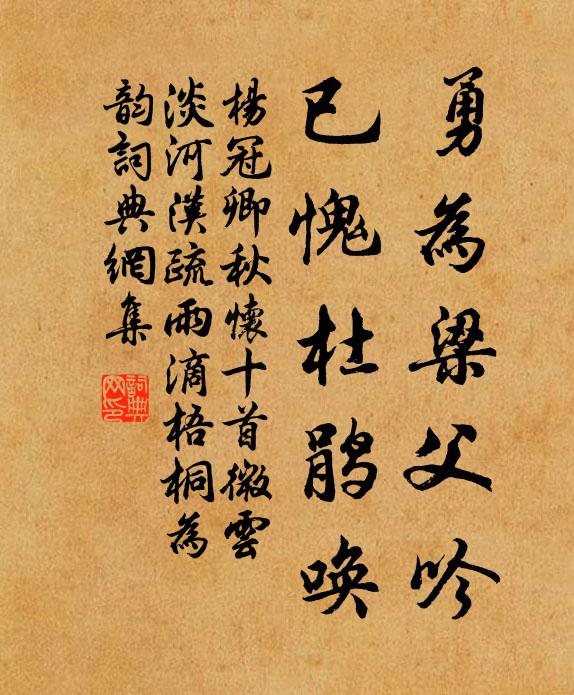 勇為梁父吟
已愧杜鹃唤
楊冠卿秋懷十首微雲
淡河漢疏雨滴梧桐為
韵詞典網集
詞典網印